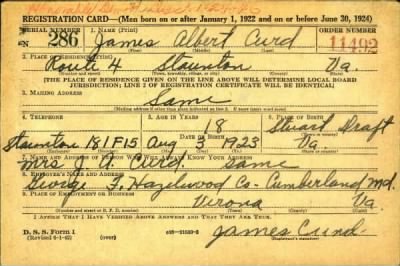 REGISTRATION CARD—(Men born on or after January 1, 1922 and on or before June 30, 1924)
SERIAL NUMBER 1. NAME (Print) ORDER NUMBER
N 286 James Albert Curd 11492
2. PLACE OF RESIDENCE (Print)
Route 4 Staunton Va.
(Number and street) (Town, township, village, or city) (County) (State)
[THE PLACE OF RESIDENCE GIVEN ON THE LINE ABOVE WILL DETERMINE LOCAL BOARD
JURISDICTION; LINE 2 OF REGISTRATION CERTIFICATE WILL BE IDENTICAL]
3. MAILING ADDRESS
Same
(Mailing address if other than place indicated on line 2. If same insert word same)
4. TELEPHONE 5. AGE IN YEARS 6. PLACE OF BIRTH
18 Stuart Draft
DATE OF BIRTH
Staunton 181F15 Aug 3 1923 Va.
(Exchange) (Number) (Mo.) (Day) (Yr.) (State or country)
7. NAME AND ADDRESS OF PERSON WHO WILL ALWAYS KNOW YOUR ADDRESS
Mrs. Curd same
8. EMPLOYER'S NAME AND ADDRESS
George F. Hazelwood Co - Cumberland Md.
9. PLACE OF EMPLOYMENT OR BUSINESS
Verona Va.
(Number and street or R. F. D. number) (Town) (County) (State)
I AFFIRM THAT I HAVE VERIFIED ABOVE ANSWERS AND THAT THEY ARE TRUE.
D. S. S. Form 1
(Revised 6-1-42)
James Curd
(Registrant's signature)